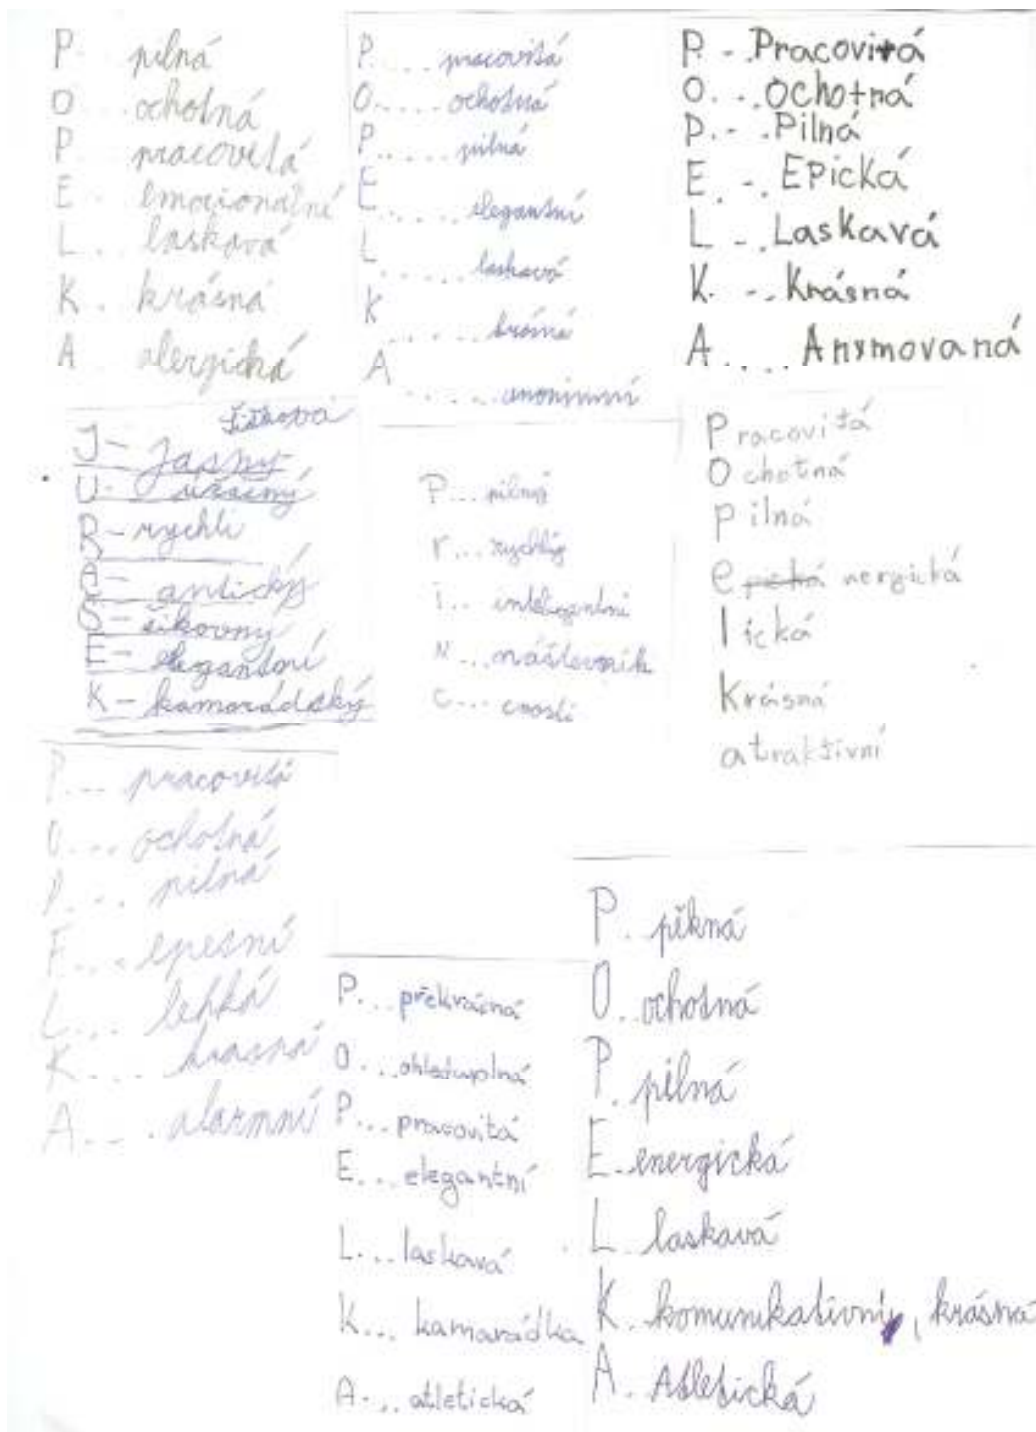 P.. pilná
O.. ochotná
P.. pracovitá
E.. emocionální
L.. laskavá
K.. krásná
A.. alergická
P.... pracovitá
O..... ochotná
P...... pilná
E....... elegantní
L....... laskavá
K...... krásná
A...... anonimní
P - .Pracovitá
O. - .Ochotná
P. - .Pilná
E. - .EPická
L - ..Laskavá
K. - ..Krásná
A.... Anymovaná
J - Jasný
U - úžasný
R - rychli
A - antický
Š - šikovný
E - elegantní
K - kamarádský
P... pilný
r... rychlý
i... inteligentní
n...
c... cnosti
Pracovitá
Ochotná
Pilná
e nergická
lická
Krásná
atraktivní
P... pracovitá
O.... ochotná
P.... pilná
E....
L.... lehká
K.... krásná
A.... alarmní
P... překrásná
O... ohleduplná
P... pracovitá
E... elegantní
L... laskavá
K... kamarádka
A... atletická
P.. pěkná
O.. ochotná
P.. pilná
E.. energická
L.. laskavá
K.. komunikativní, krásná
A.. Atletická